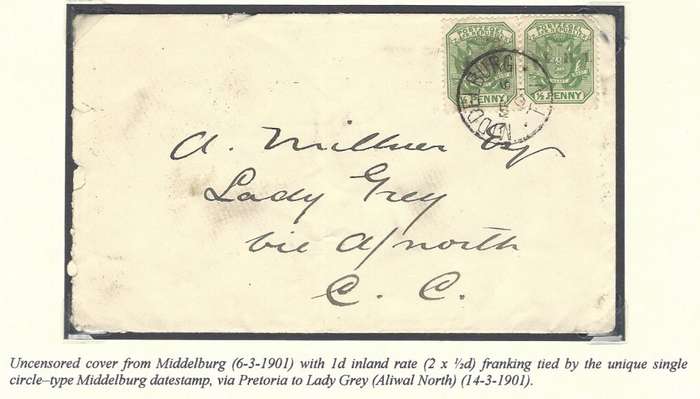 POSTZEGEL POSTZEGEL
½ PENNY ½ PENNY
MIDDELBURG
A. Millner Esq
Lady Grey
via A/north
C. C.
Uncensored cover from Middelburg (6-3-1901) with 1d inland rate (2 x ½d) franking tied by the unique single
circle–type Middelburg datestamp, via Pretoria to Lady Grey (Aliwal North) (14-3-1901).